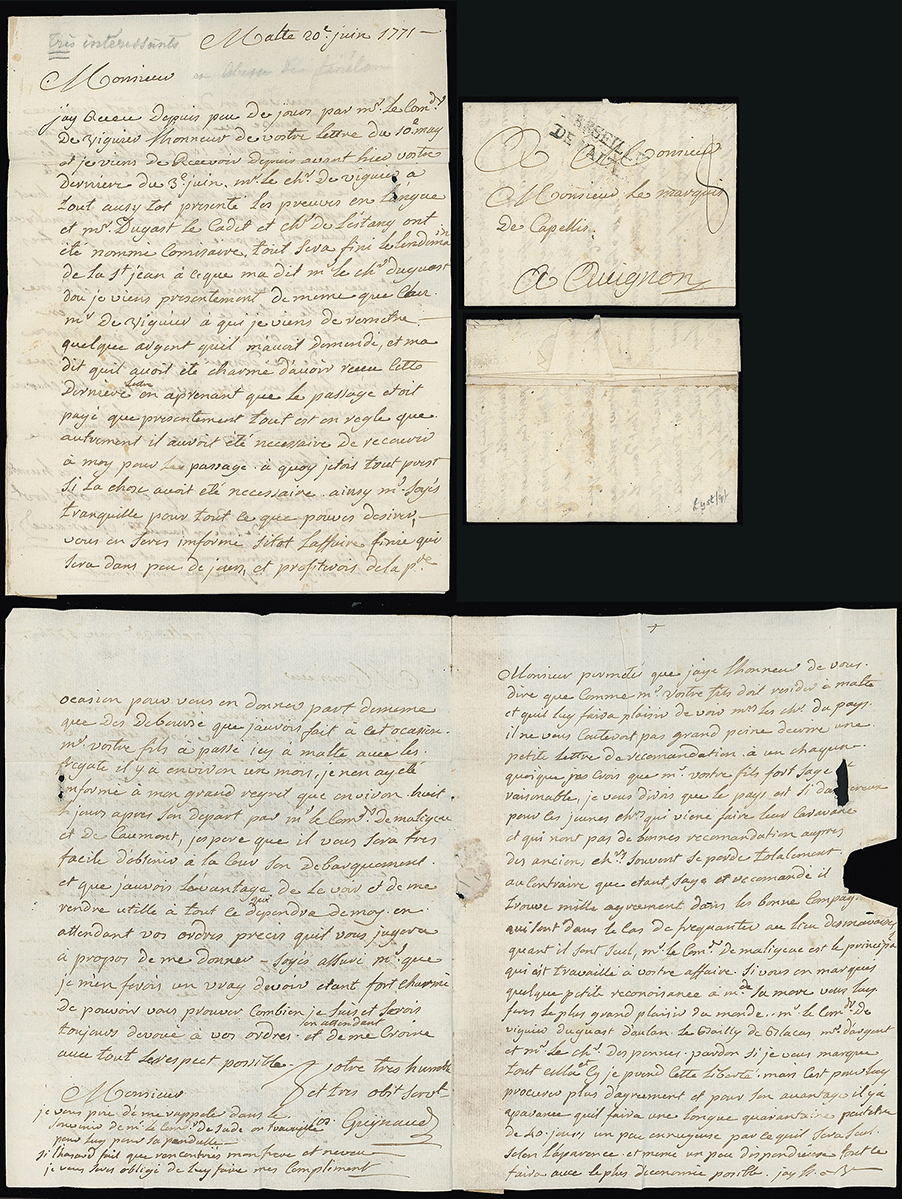 très interessants
Malte 20e juin 1771 –
Monsieur
jay Receu Depuis peu de jours par mr. le Comdr
De viguier lhonneur de vostre lettre du 10e may
et je viens de Recevoir depuis avant hier vostre
Derniere du 3e juin, mr. le chr. de viguier a
tout aussy tot presenté les preuves en Langue
et mrs. Dugast le Cadet et chr. de Lestang ont
été nommé Comisaire, tout sera fini le lendemain
de la st jean à ceque ma dit mr. le chr. duguast
dou je viens presentement de meme que chez
mr. de viguier à qui je viens de remetre
quelque argent quil mavoit demandé, et ma
dit quil avoit été charmé davoir receu cette
Derniere Lettre en aprenant que le passage etoit
payé que presentement tout est en regle que
autrement il auroit été necessaire de recourir
à moy pour le passage à quoy jetois tout prest
si la chose avoit été necessaire. ainsy mr. soyés
tranquille pour tout ce que pouvés desirer,
vous en serés informé sitot laffaire finie qui
sera dans peu de jours, et profiterois de la pre
A Monsieur
Monsieur le marquis
De Capellis.
A Avignon
DE MALTE
ocasion pour vous en donner part de meme
que des debourse que jaurois fait à cet ocasion.
mr. vostre fils à passé icy à malte avec les
fregate il y à environ un mois, je nen ay été
informé à mon grand regret que environ huit
jours apres son depart par mr. le Comdr. de maligeac
et de Caumont, jespere que il vous sera tres
facile dobtenir à la Cour son debarquement
et que jaurois lavantage de le voir et de me
rendre utille à tout ce qui dependra de moy. en
attendant vos ordres precis quil vous jugera
à propos de me donner – soyés assuré mr. que
je men ferois un vray devoir etant fort charmé
de pouvoir vous prouver combien je suis et serois
toujours devoué à vos ordres en attendant et de me Croire
avec tout le respect possible
Votre tres humble
et tres obt. servt.
Monsieur
je vous prie de me rappele dans le
souvenir de mr. le Comr. de Sade
pour luy pour sa pendulle
si lhasard fait que rencontriés mon frere et neveu
je vous serés obligé de luy faire mes Compliment
Monsieur permeté que jaye lhonneur de vous
dire que Comme mr. vostre fils doit resider à malte
et quil luy faira plaisir de voir mrs. les chr. du pays
il ne vous Couteroit pas grand peine decrire une
petite lettre de recomandation à un chaqune
quoique je Crois que mr. vostre fils fort sage et
raisonable, je vous dirois que le pays est si dangereux
pour les jeunes chr. qui viene faire leur Caravane
et qui nont pas de bonnes recomandation aupres
des ancien chr. souvent se perde totalement
au Contraire que etant sage et recomandé il
trouve mille agrement dans les bonne Compagnie
qui sont dans le Cas de frequanter au lieu des mauvaise
quant il sont seul, mr. le Comr. de maligeac est le principal
qui ait travaillé à vostre affaire. si vous en marquiés
quelque petite reconoisance à mde. sa mere vous luy
ferés le plus grand plaisir du monde. mr. le Comdr. de
viguier duguast daulan. le Bailly de Glaces, mr. dargent
et mr. le chr. Desponnes. pardon si je vous marque
tout cella et si je prend cette liberté, mais cest pour luy
procurer plus dagrement et pour son avantage il y à
aparance quil faira une Longue quarantaine peutetre
de 40 jours, un peu ennuyeuse par ce quil sera seul
selon laparence et meme un peu dispendieuse tout ce
faira avec le plus deconomie posible.